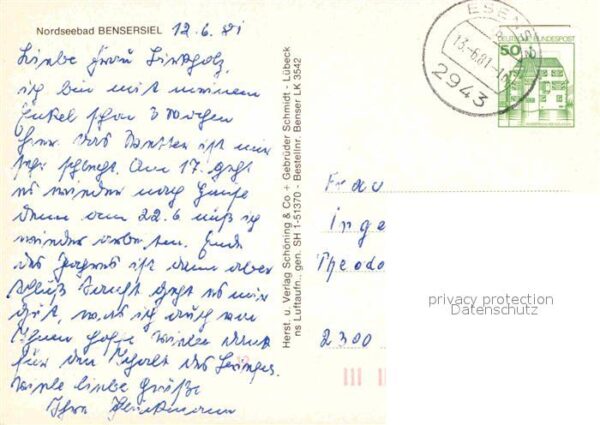 Nordseebad BENSERSIEL 12.6.81
Liebe Frau
ich bin mit meinem
Enkel schon 3 Wochen
hier das Wetter ist mir
sehr schlecht. Am 17. geht
es wieder nach Hause
denn am 22.6 muß ich
wieder arbeiten. Ende
des Jahres ist dann aber
Schluß Sonst geht es mir
gut, was ich auch von
Ihnen hoffe Vielen Dank
für den Erhalt des
Viele liebe Grüße
Ihre
Herst. u. Verlag Schöning & Co + Gebrüder Schmidt - Lübeck
ns Luftaufn., gen. SH 1-51370 - Bestellnr. Benser LK 3542
ESENS
13.-6.81
2943
DEUTSCHE BUNDESPOST
50
Frau
Inge
Theodo
2300
privacy protection
Datenschutz